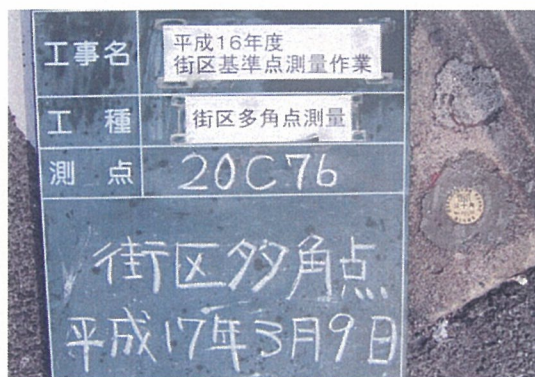 工事名
平成16年度
街区基準点測量作業
工種
街区多角点測量
測点
20C76
街区多角点
平成17年3月9日